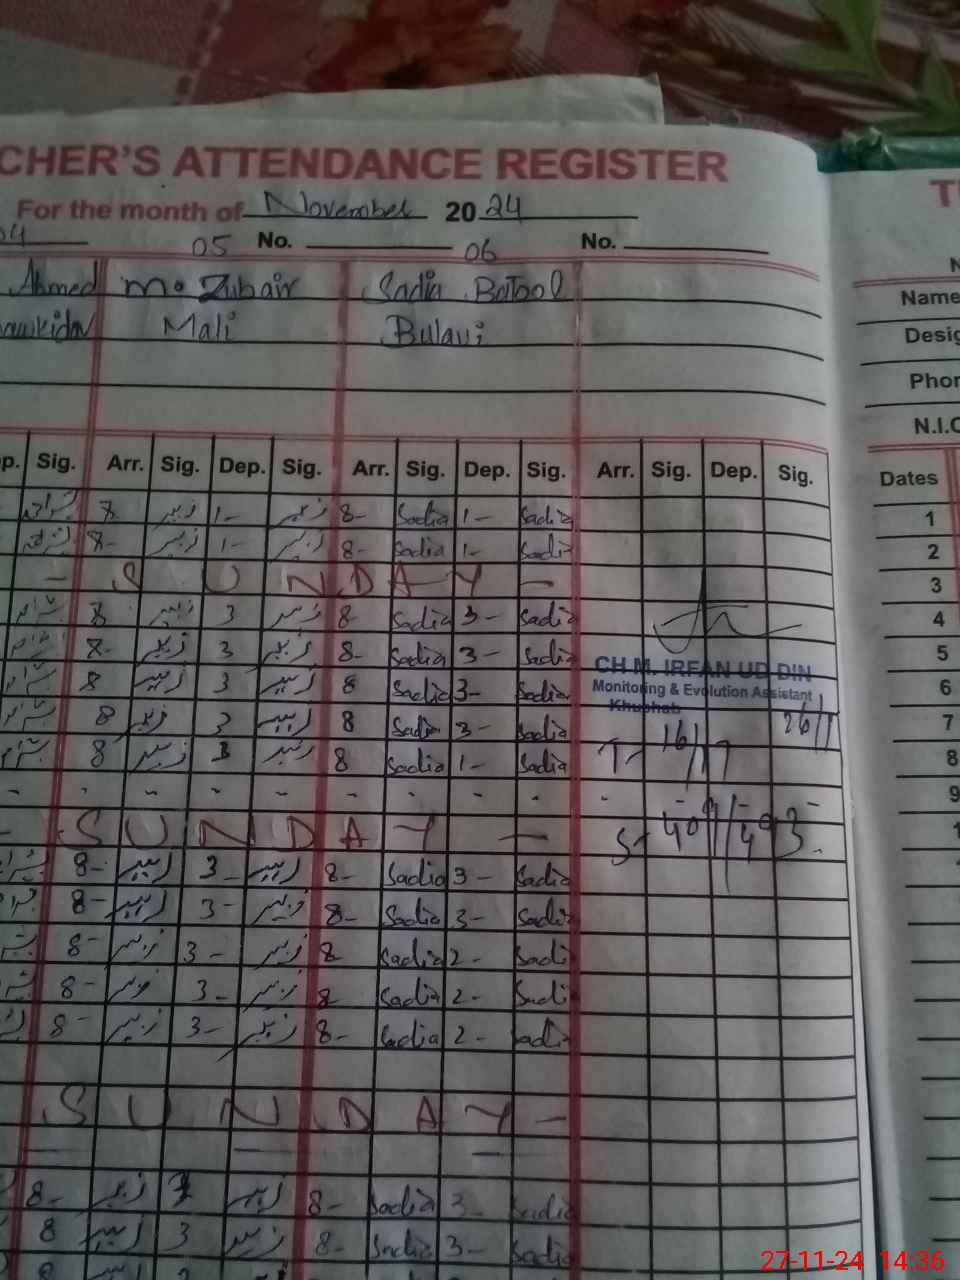 CHER'S ATTENDANCE REGISTER
For the month of November 2024
04 05 No. 06 No.
Ahmed M. Zubair Sadia Batool
Mali
p. Sig. Arr. Sig. Dep. Sig. Arr. Sig. Dep. Sig. Arr. Sig. Dep. Sig.
8- زبیر 1- زبیر 8- Sadia 1- Sadia
8- زبیر 1- زبیر 8- Sadia 1- Sadia
- SUNDAY -
8 زبیر 3 زبیر 8 Sadia 3- Sadia
8- زبیر 3 زبیر 8- Sadia 3- Sadia
8 زبیر 3 زبیر 8 Sadia 3- Sadia
8 زبیر 3 زبیر 8 Sadia 3- Sadia
8 زبیر 3 زبیر 8 Sadia 1- Sadia
CH M. IRFAN UD DIN
Monitoring & Evolution Assistant
Khushab
26/11
T- 16/17
- SUNDAY -
8- زبیر 3- زبیر 8- Sadia 3- Sadia
8- زبیر 3- زبیر 8- Sadia 3- Sadia
8- زبیر 3- زبیر 8 Sadia 2- Sadia
8- زبیر 3- زبیر 8 Sadia 2- Sadia
8- زبیر 3- زبیر 8- Sadia 2- Sadia
SUNDAY-
8- زبیر زبیر 8- Sadia 3- Sadia
8 زبیر 3 زبیر 8- Sadia 3- Sadia
T
N
Name
Desig
Phon
N.I.C
Dates
1
2
3
4
5
6
7
8
9
1
27-11-24 14:36